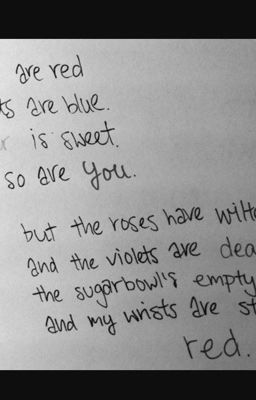 are red
are blue.
is sweet.
so are you.
but the roses have
and the violets are
the sugarbowl's empty
and my wrists are
red.